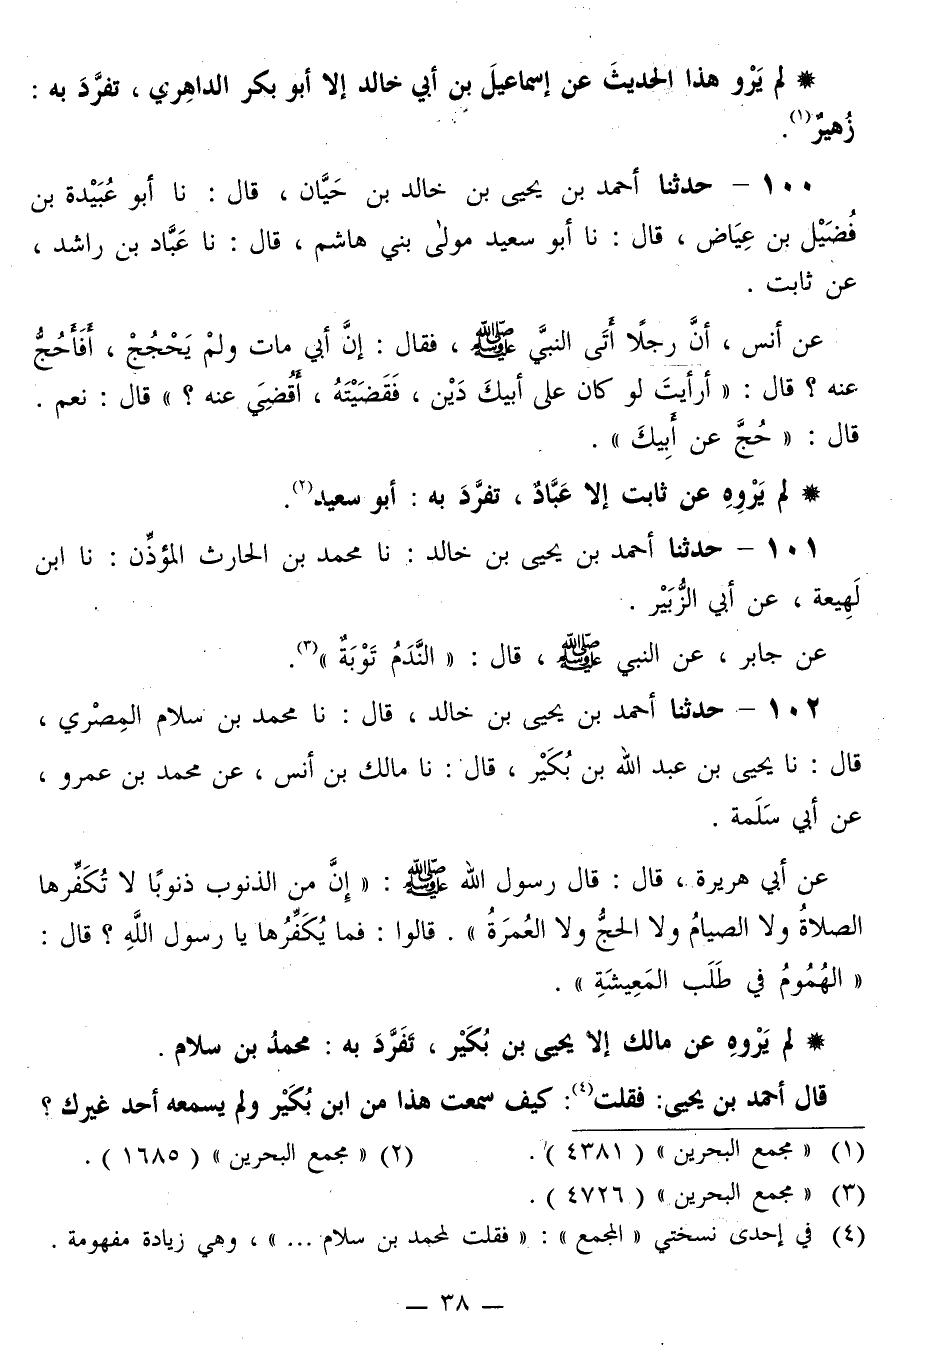 * لم يَرْو هذا الحديثَ عن إسماعيلَ بن أبي خالد إلا أبو بكر الداهِري ، تفرَّدَ به :
زُهيرٌ(١).
١٠٠ – حدثنا أحمد بن يحيى بن خالد بن حَيَّان ، قال : نا أبو عُبَيْدة بن
فُضَيْل بن عِيَاض ، قال : نا أبو سعيد مولىٰ بني هاشم ، قال : نا عَبَّاد بن راشد ،
عن ثابت .
عن أنس ، أنَّ رجلًا أَتَى النبيَّ ﷺ ، فقال : إنَّ أبي مات ولمْ يَحْجُجْ ، أَفَأَحُجُّ
عنه ؟ قال : « أرأيتَ لو كان على أبيكَ دَيْن ، فَقَضَيْتَهُ ، أَقُضِيَ عنه ؟ » قال : نعم .
قال : « حُجَّ عن أَبِيكَ » .
* لم يَرْوِهِ عن ثابت إلا عَبَّادٌ ، تفرَّدَ به : أبو سعيد(٢).
١٠١ – حدثنا أحمد بن يحيى بن خالد : نا محمد بن الحارث المؤذِّن : نا ابن
لَهِيعة ، عن أبي الزُّبَيْر .
عن جابر ، عن النبي ﷺ ، قال : « النَّدَمُ تَوْبَةٌ »(٣).
١٠٢ – حدثنا أحمد بن يحيى بن خالد ، قال : نا محمد بن سلام المِصْري ،
قال : نا يحيى بن عبد الله بن بُكَيْر ، قال : نا مالك بن أنس ، عن محمد بن عمرو ،
عن أبي سَلَمة .
عن أبي هريرة ، قال : قال رسول الله ﷺ : « إِنَّ من الذنوب ذنوبًا لا تُكَفِّرها
الصلاةُ ولا الصيامُ ولا الحجُّ ولا العُمرَةُ » . قالوا : فما يُكَفِّرُها يا رسول اللَّهِ ؟ قال :
« الهُمُومُ في طَلَب المَعِيشَةِ » .
* لم يَرْوِهِ عن مالك إلا يحيى بن بُكَيْر ، تَفَرَّدَ به : محمدُ بن سلام .
قال أحمد بن يحيى: فقلت(٤): كيف سمعت هذا من ابن بُكَيْر ولم يسمعه أحد غيرك ؟
(١) « مجمع البحرين » ( ٤٣٨١ ) . (٢) « مجمع البحرين » ( ١٦٨٥ ) .
(٣) « مجمع البحرين » ( ٤٧٢٦ ) .
(٤) في إحدى نسختي « المجمع » : « فقلت لمحمد بن سلام ... » ، وهي زيادة مفهومة .
— ٣٨ —